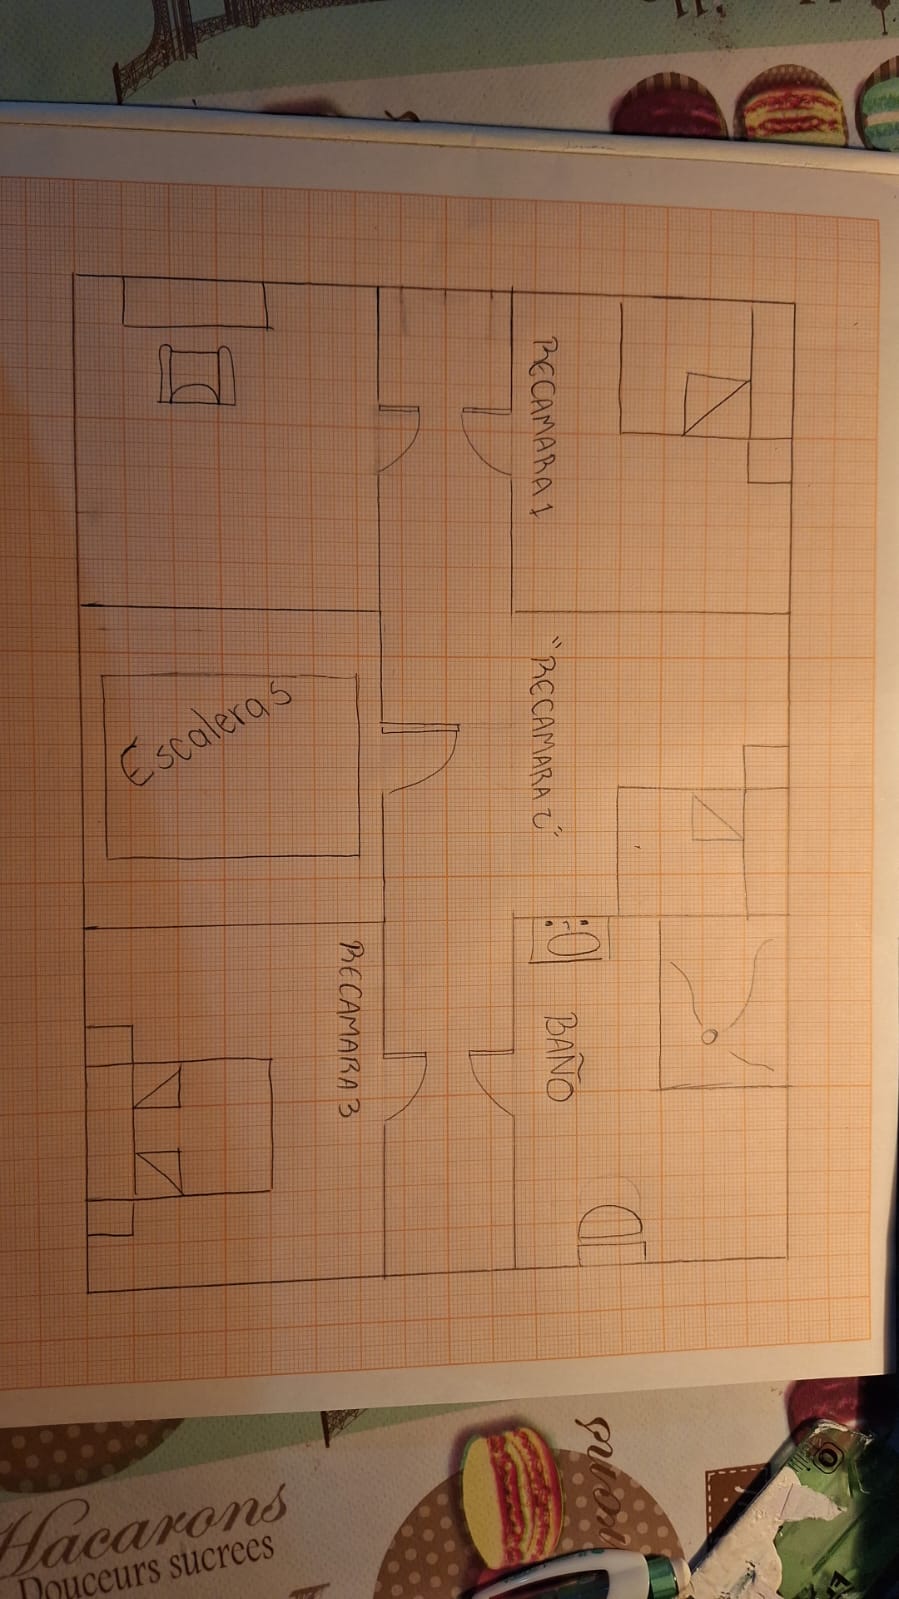 RECAMARA 1
"RECAMARA 2"
Escaleras
RECAMARA 3
BAÑO
Macarons
Douceurs sucrees